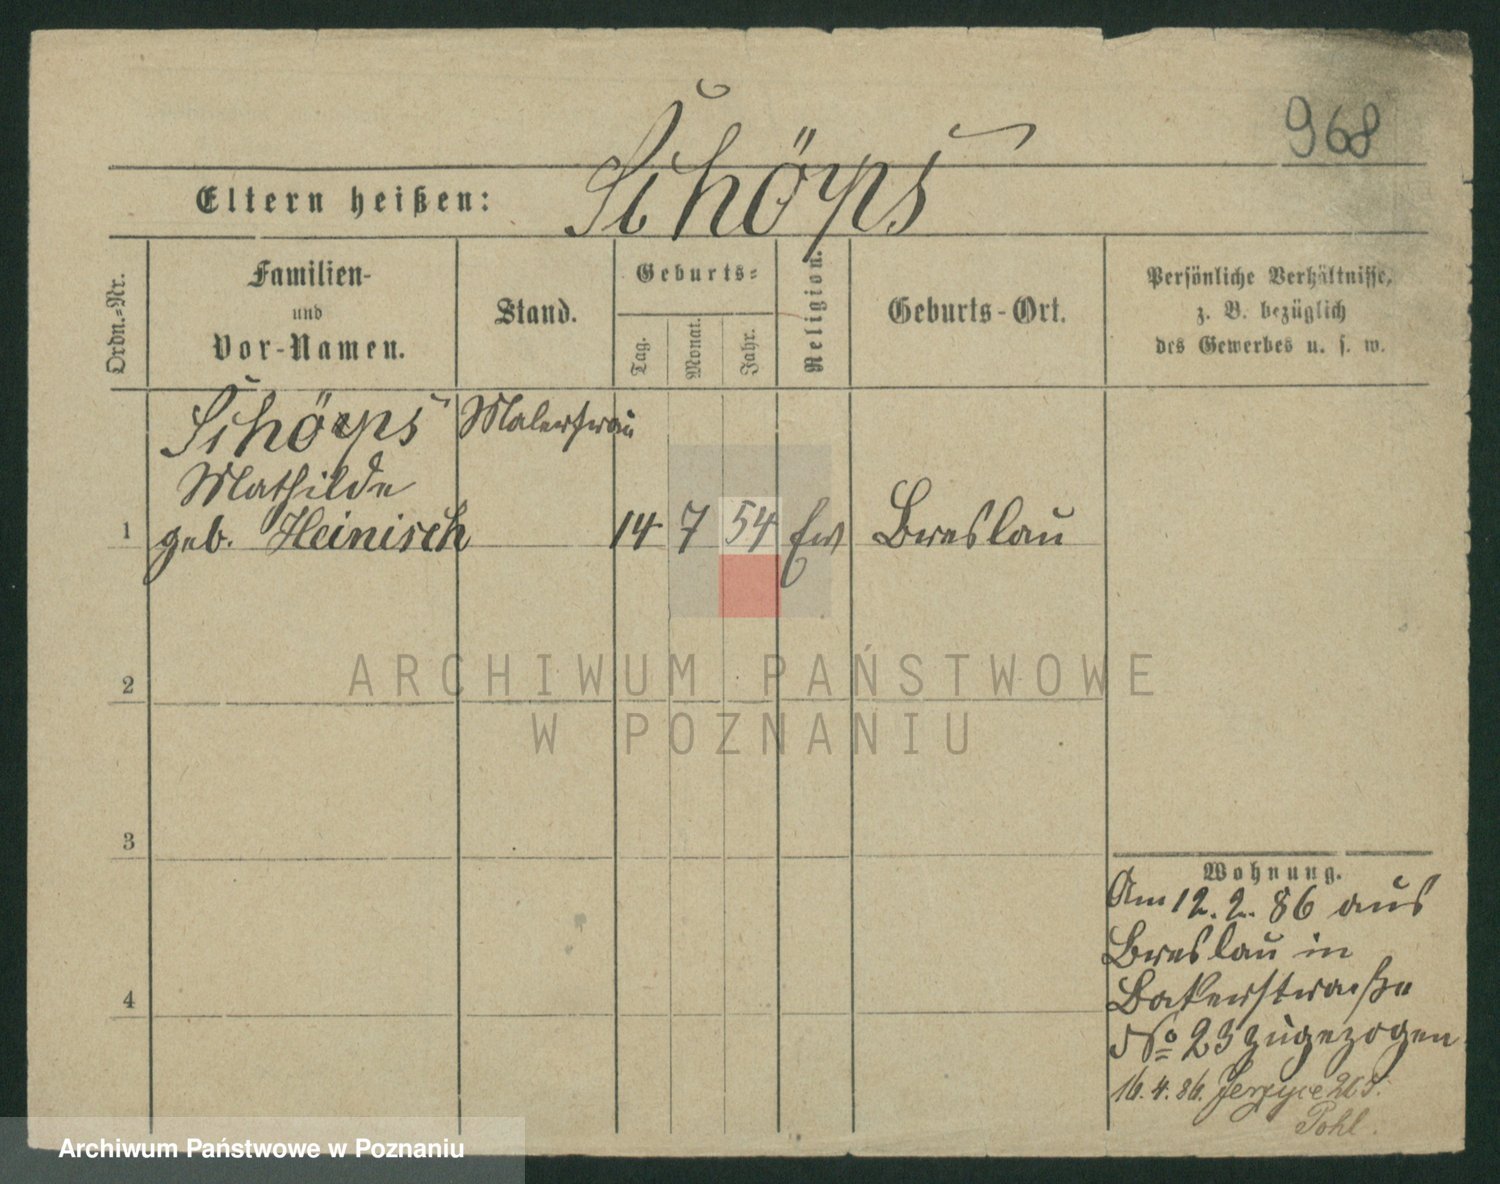 968
Schöps
Eltern heißen:
Ordn.=Nr.
Familien-
und
Vor-Namen.
Stand.
Geburts=
Tag.
Monat.
Jahr.
Religion.
Geburts-Ort.
Persönliche Verhältnisse,
z. B. bezüglich
des Gewerbes u. s. w.
Schöps Malerfrau
Mathilde
1 geb. Heinisch 14 7 54 Ev Breslau
2
3
4
Wohnung.
Am 12. 2. 86 aus
Breslau in
Bäkerstraße
No 23 zugezogen
16.4.86. Jerzyce
Pohl.
ARCHIWUM PAŃSTWOWE
W POZNANIU
Archiwum Państwowe w Poznaniu